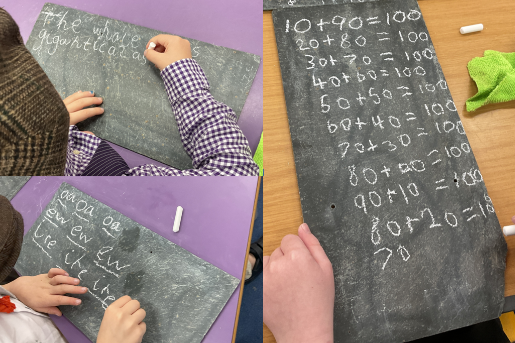 The whole = y
gigantical a
oa oa oa
ew ew ew
ire ire ire
10+90=100
20+80=100
30+70=100
40+60=100
50+50=100
60+40=100
70+30=100
80+20=100
90+10=100
80+20=10
70